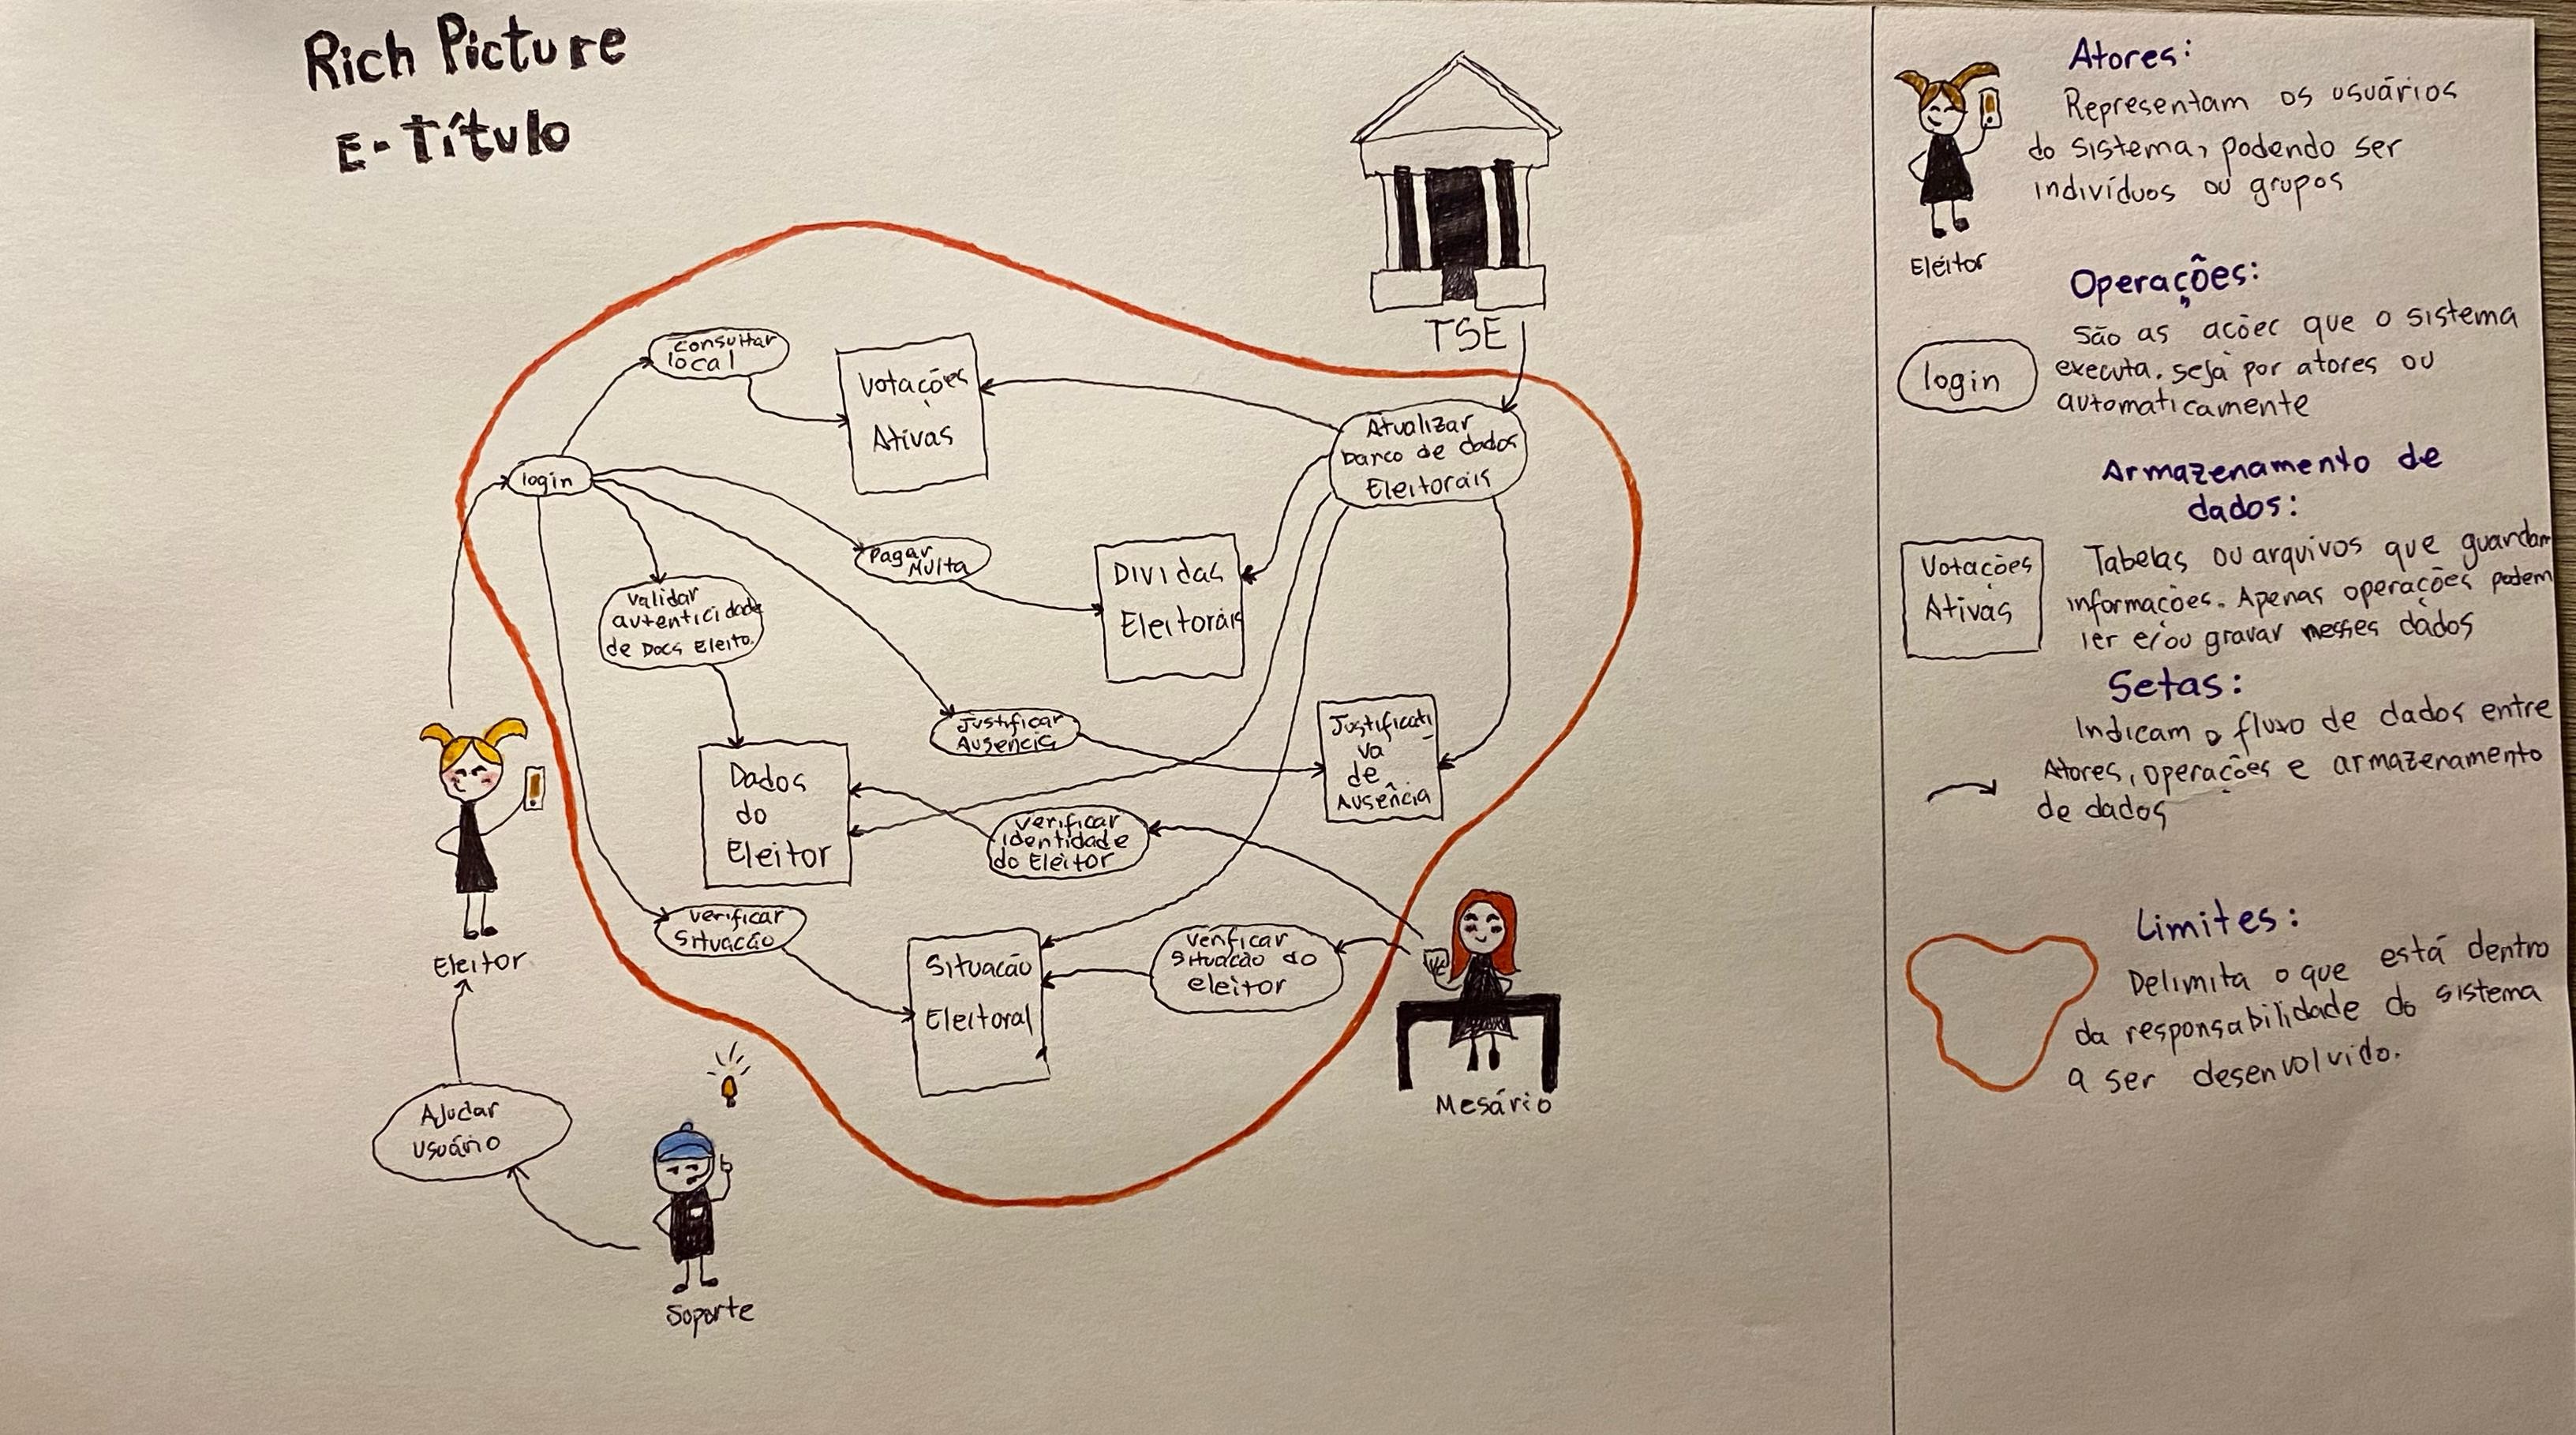 Rich Picture
E-Título
TSE
consultar
local
Votações
Ativas
Atualizar
banco de dados
Eleitorais
login
Pagar
Multa
Dividas
Eleitorais
validar
autenticidade
de Docs Eleito.
Justificar
Ausencia
Justificati
va
de
Ausência
Dados
do
Eleitor
verificar
identidade
do Eleitor
verificar
situação
Situação
Eleitoral
verificar
situação do
eleitor
Eleitor
Mesário
Ajudar
usuário
Soporte
Atores:
Representam os usuários
do sistema, podendo ser
indivíduos ou grupos
Eleitor
Operações:
São as açõec que o sistema
executa. seja por atores ou
automaticamente
login
Armazenamento de
dados:
Tabelas ou arquivos que guardam
informações. Apenas operações podem
ler e/ou gravar nesses dados
Votações
Ativas
Setas:
Indicam o fluxo de dados entre
Atores, operações e armazenamento
de dados
Limites:
Delimita o que está dentro
da responsabilidade do sistema
a ser desenvolvido.